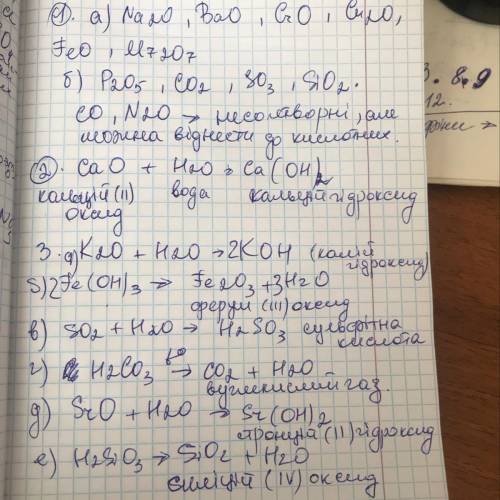 1. а) Na2O , BaO , CrO , Cu2O,
FeO , Mn2O7
б) P2O5 , CO2 , SO3 , SiO2.
CO, N2O → несолетворні, але
можна віднести до кислотних.
2. CaO + H2O → Ca(OH)2
кальцій (II) оксид вода кальцій гідроксид
3. а) K2O + H2O → 2KOH (калій гідроксид)
б) 2Fe(OH)3 → Fe2O3 + 3H2O
ферум (III) оксид
в) SO2 + H2O → H2SO3 сульфітна
кислота
г) H2CO3 t° → CO2 + H2O
вуглекислий газ.
д) SrO + H2O → Sr(OH)2
стронцій (II) гідроксид
е) H2SiO3 → SiO2 + H2O
силіцій (IV) оксид
8.9
12.